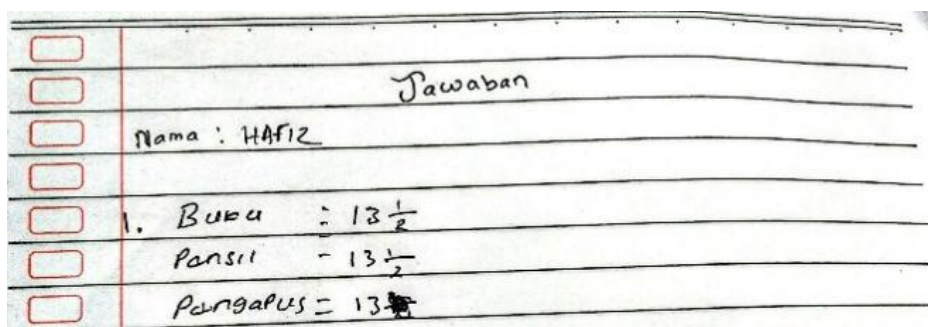 Jawaban
Nama : HAFIZ
1. Buku = 13 1/2
Pansil - 13 1/2
Pangapus = 13